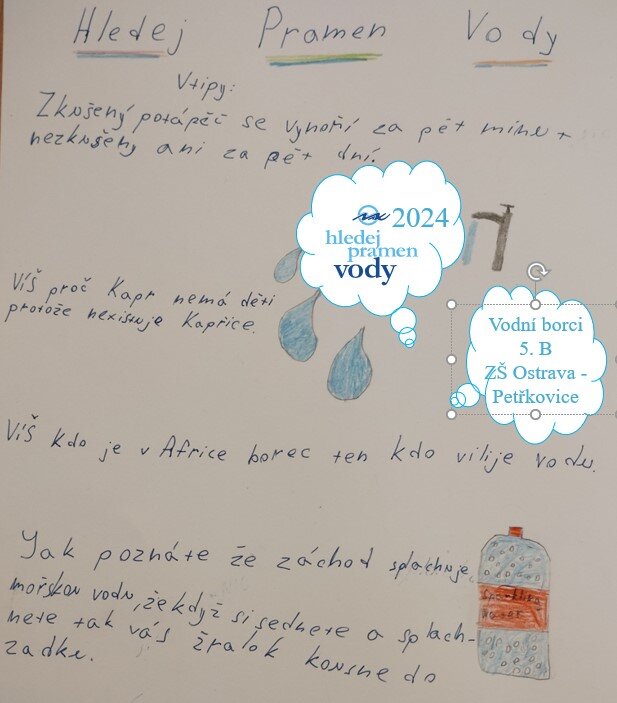 Hledej Pramen Vody
Vtipy:
Zkušený potápěč se vynoří za pět minut
nezkušený ani za pět dní.
2024
hledej
pramen
vody
Víš proč Kapr nemá děti
protože nexistuje Kapřice.
Vodní borci
5. B
ZŠ Ostrava -
Petřkovice
Víš kdo je v Africe borec ten kdo vilije vodu.
Jak poznáte že záchod splachuje
mořskou vodu, že když si sednete a splach-
nete tak vás žralok kousne do
zadku.